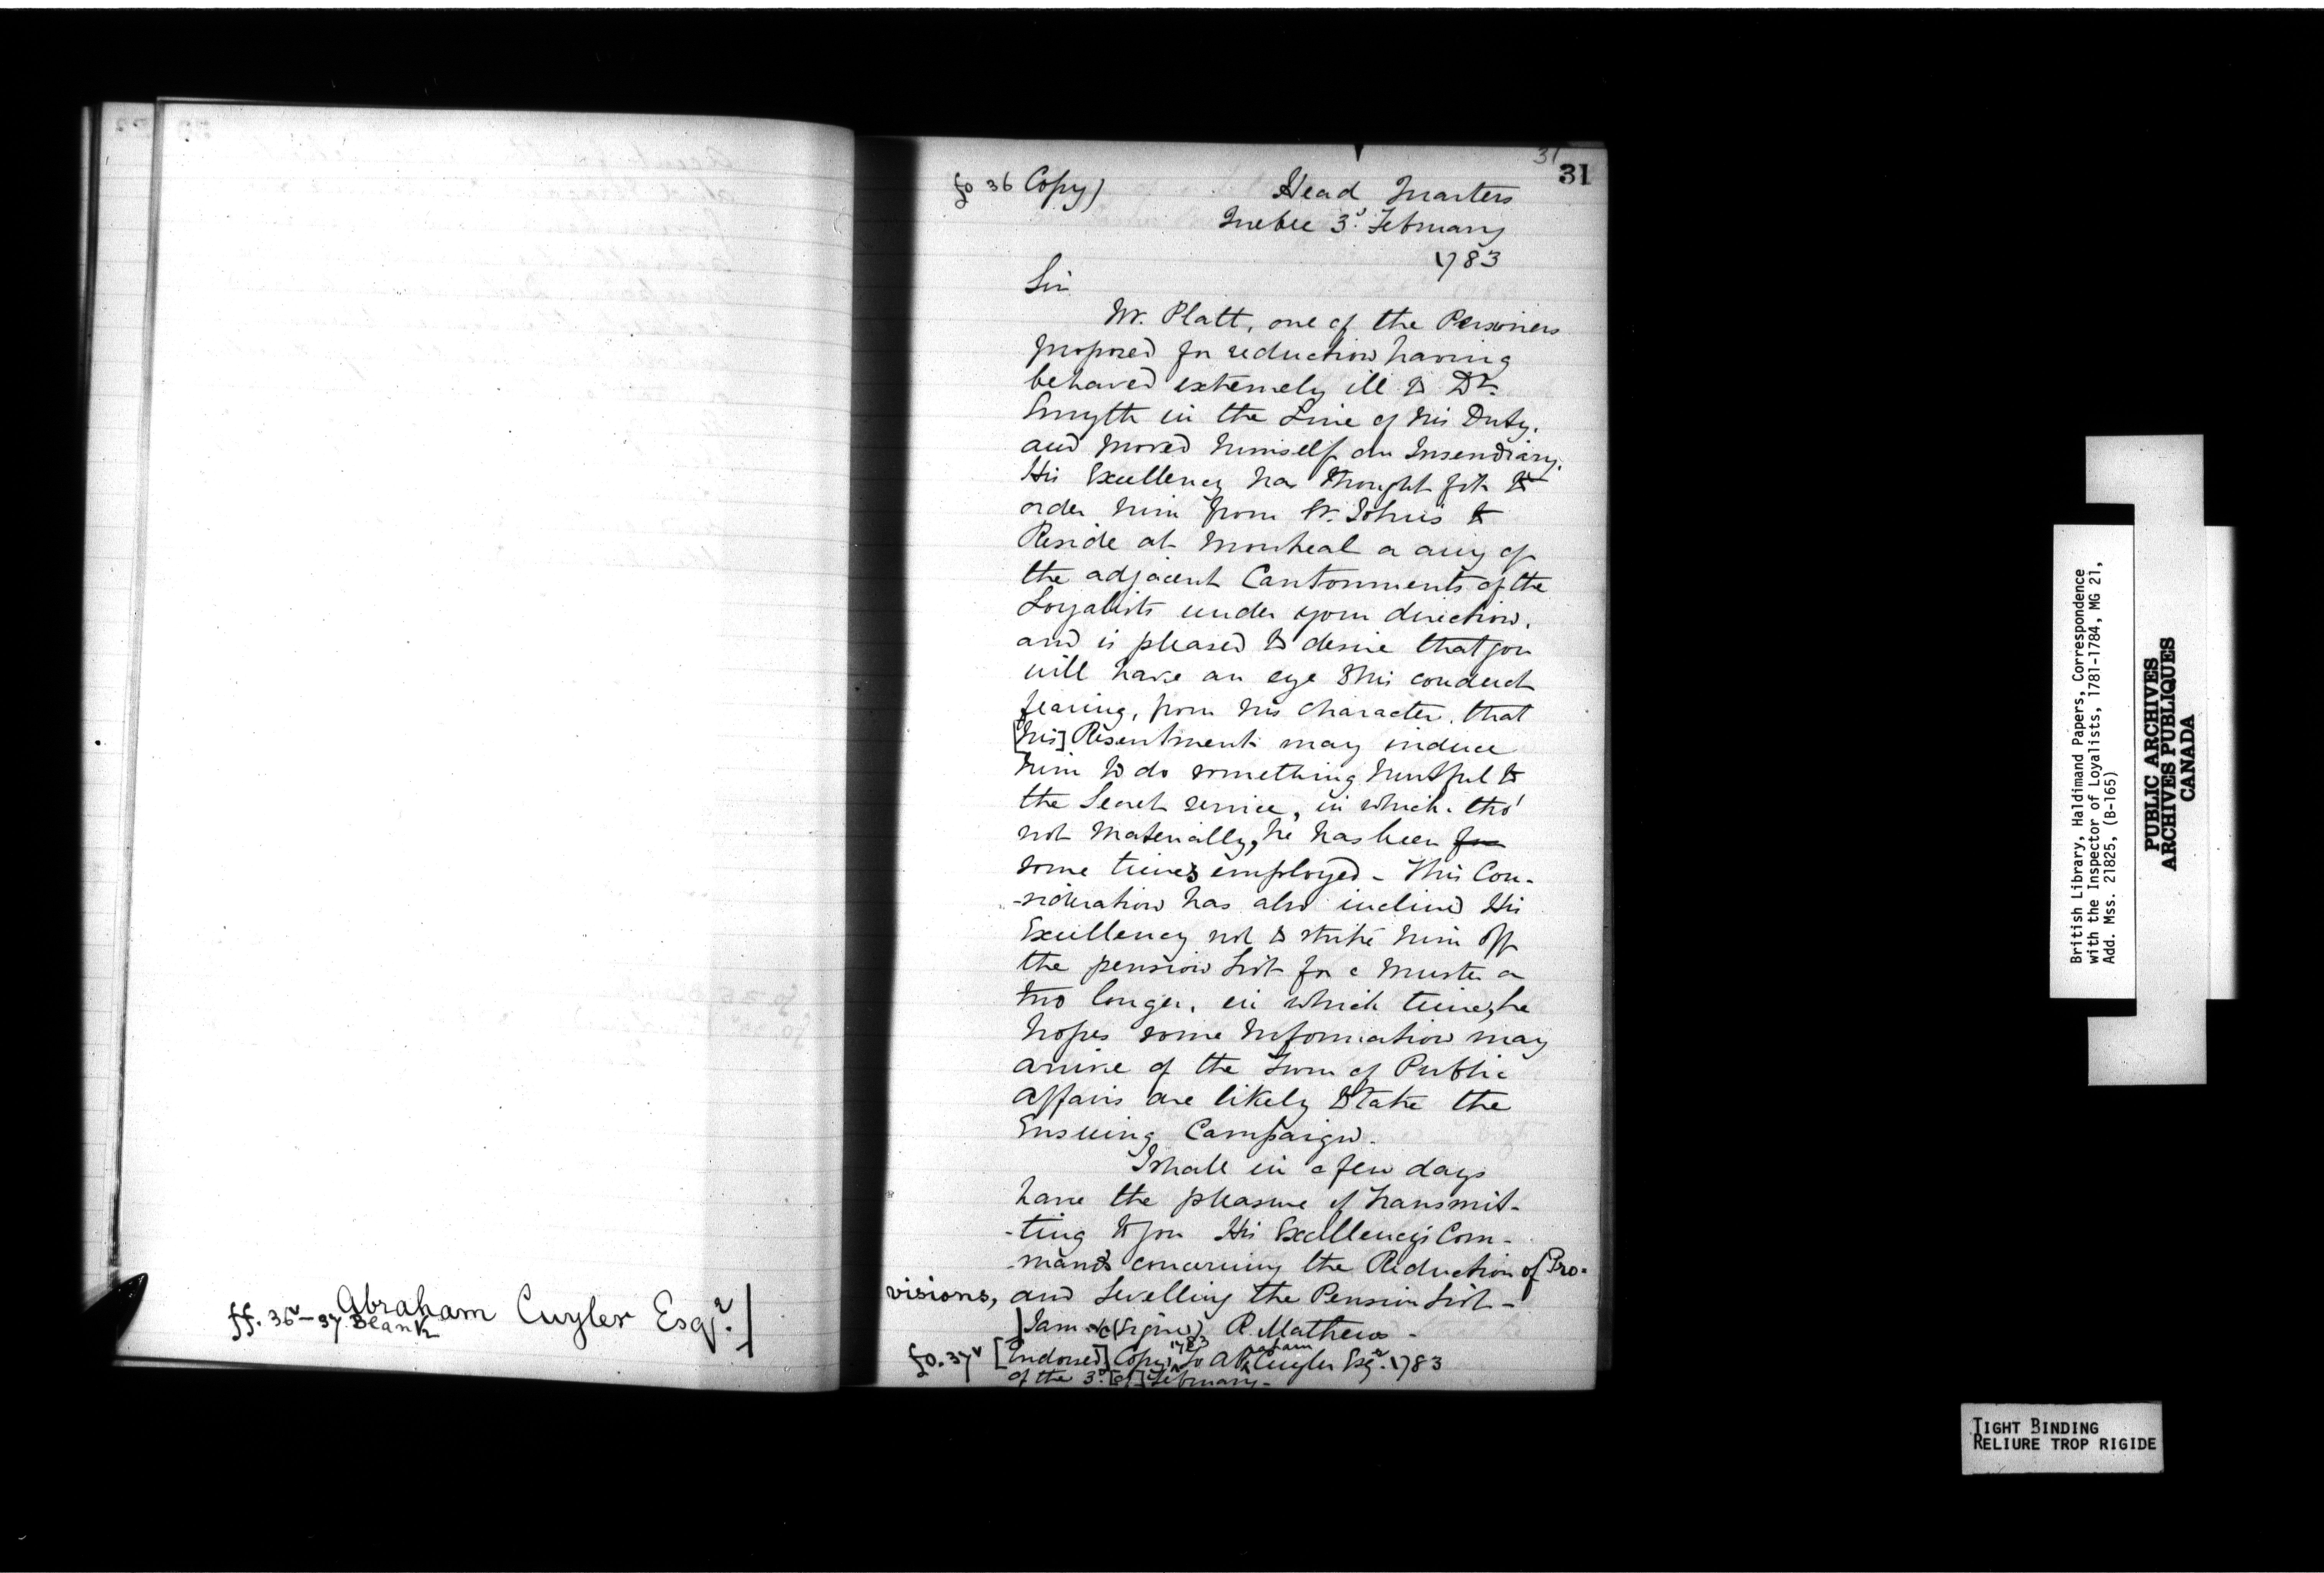 31
31
fo 36 Copy)
Head Quarters
Quebec 3d. February
1783
Sir
Mr. Platt, one of the Persioners
proposed for reduction having
behaved extremely ill to Dr.
Smyth in the Line of his Duty,
and proved himself an Insendiary,
His Excellency has thought fit to
order him from St. John's to
Reside at Montreal or any of
the adjacent Cantonments of the
Loyalists under your direction,
and is pleased to desire that you
will have an eye to his conduct
fearing, from his character, that
[his] Resentment may induce
him to do something hurtful to
the Secret service, in which, tho'
not Materially, he has been for
some times employed - This Con-
-sideration has also inclined His
Excellency not to strike him off
the pension List for a Muster or
two longer, in which time, he
hopes some Information may
arrive of the Turn of Public
Affairs are likely to take the
Ensuing Campaign.
I shall in a few days
have the pleasure of transmit-
-ting to you His Excellency's Com-
-mands concerning the Reduction of Pro-
visions, and Levelling the Pension List -
I am &c (Signed) R. Mathews -
Abraham Cuyler Esqr.
ff. 36v-37 Blank
fo. 37v [Endorsed] Copy 1783 To Abraham Cuyler Esqr. 1783
of the 3d. [of] February -
British Library, Haldimand Papers, Correspondence
with the Inspector of Loyalists, 1781-1784, MG 21,
Add. Mss. 21825, (B-165)
PUBLIC ARCHIVES
ARCHIVES PUBLIQUES
CANADA
TIGHT BINDING
RELIURE TROP RIGIDE